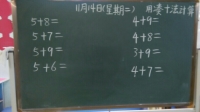 11月14日(星期二) 用凑十法计算
5+8=
5+7=
5+9=
5+6=
4+9=
4+8=
3+9=
4+7=